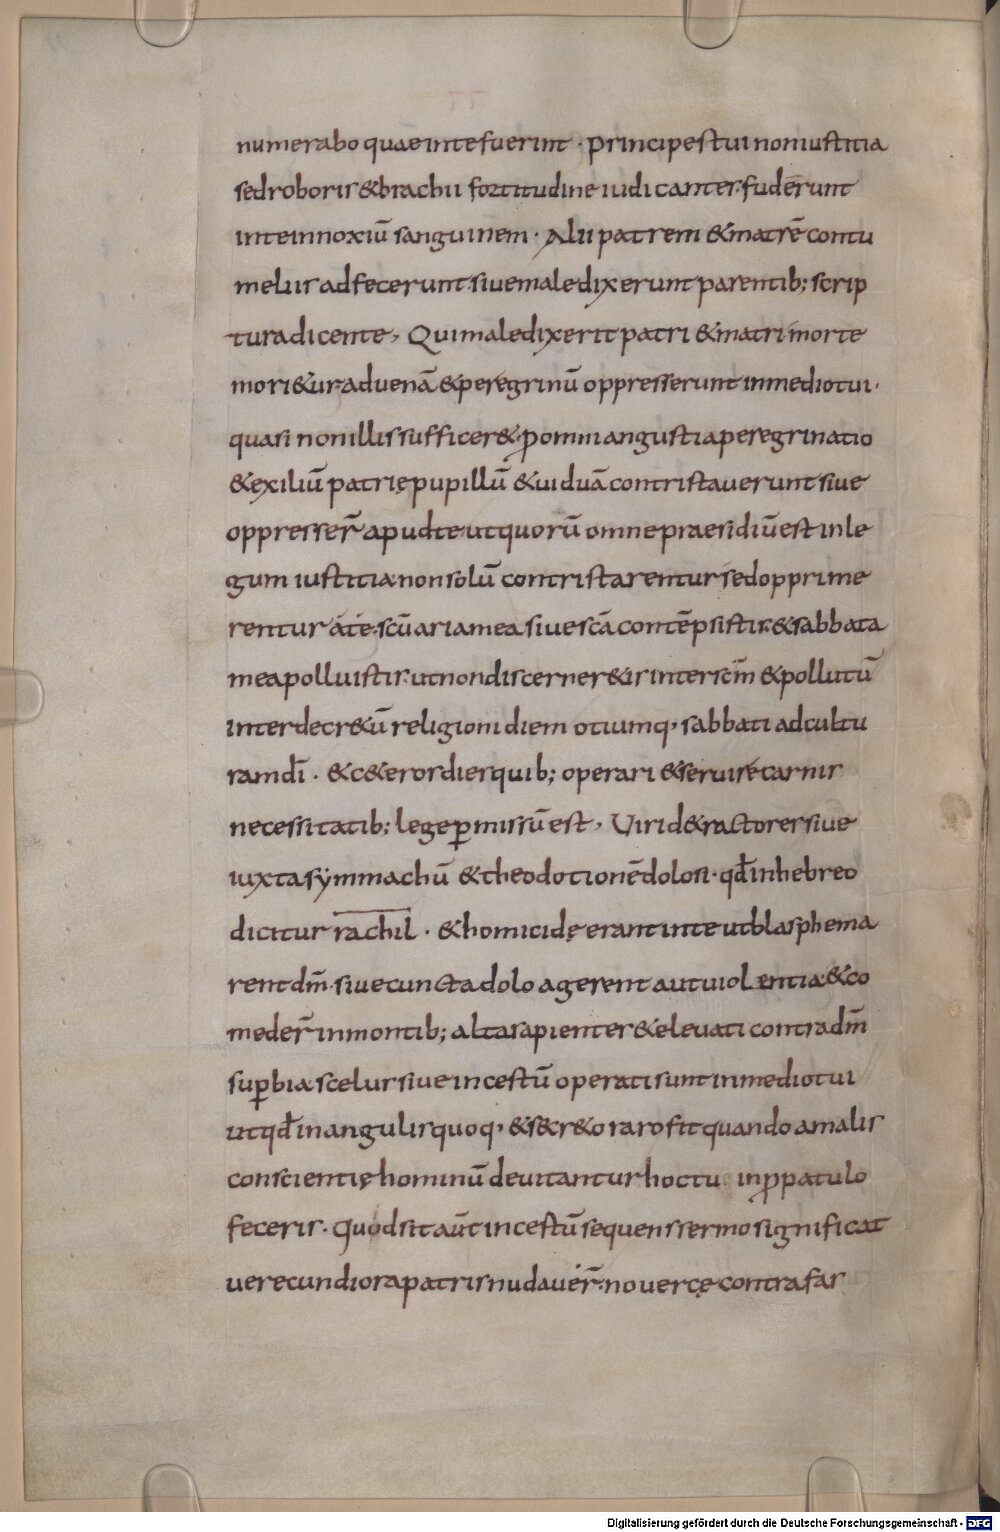 numerabo quae inte fuerint · principes tui non iustitia
sed roboris & brachii fortitudine iudicantes fuderunt
inte innoxiū sanguinem · Alii patrem & matrē contu
meliis adfecerunt siue maledixerunt parentib; scrip
tura dicente, Qui maledixerit patri & matri morte
mori&ur aduenā & peregrinū oppresserunt in medio tui ·
quasi non illis suffícer& p̱ omni angustia peregrinatio
& exiliū patrię pupillū & uiduā contristauerunt siue
oppresser̄ apud te ut quorū omne praesidiū est in le
gum iustitia non solū contristarentur sed opprime
rentur áté. scūaria mea siue scā contēpsistis & sabbata
mea polluistis ut non discerner&is inter scm̄ & pollutū
inter decr&ū religioni diem otiumq, sabbati ad cultu
ram dī · & c&eros dies quib; operari & seruire carnis
necessitatib; lege p̱missū est, Viri d&ractores siue
iuxta sýmmachū & theodotionē dolosi · qđ in hebreo
dicitur rachil · & homicidę erant inte ut blasphema
rent dm̄ · siue cuncta dolo agerent aut uiolentia & co
meder̄ in montib; alta sapientes & eleuati contra dm̄
sup̱bia scelus siue incestū operati sunt in medio tui
ut qđ in angulis quoq, & secr&o raro fit quando a malis
conscientię hominū deuitantur hoc tu in p̱patulo
feceris · Quod sit aūt incestū sequens sermo significat
uerecundiora patris nudauer̄ · nouercę contra fas